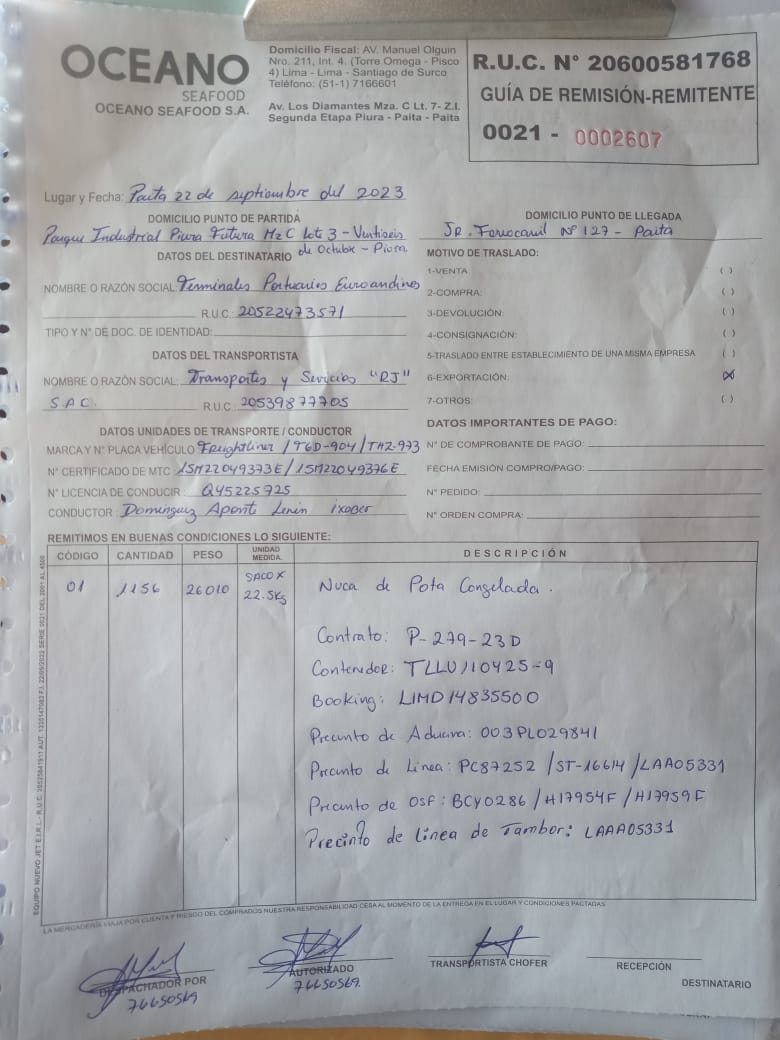 OCEANO
SEAFOOD
OCEANO SEAFOOD S.A.
Domicilio Fiscal: AV. Manuel Olguin
Nro. 211, Int. 4. (Torre Omega - Pisco
4) Lima - Lima - Santiago de Surco
Teléfono: (51-1) 7166601
Av. Los Diamantes Mza. C Lt. 7- Z.I.
Segunda Etapa Piura - Paita - Paita
R.U.C. N° 20600581768
GUÍA DE REMISIÓN-REMITENTE
0021 - 0002607
Lugar y Fecha: Paita 22 de septiembre del 2023
DOMICILIO PUNTO DE PARTIDA
Parque Industrial Piura Futura Mz C lote 3 - Veintiseis
de Octubre - Piura
DOMICILIO PUNTO DE LLEGADA
JR. Ferrocarril N° 127 - Paita
DATOS DEL DESTINATARIO
NOMBRE O RAZÓN SOCIAL: Terminales Portuarios Euroandinos
R.U.C.: 20522473571
TIPO Y N° DE DOC. DE IDENTIDAD:
MOTIVO DE TRASLADO:
1-VENTA ( )
2-COMPRA: ( )
3-DEVOLUCIÓN: ( )
4-CONSIGNACIÓN: ( )
5-TRASLADO ENTRE ESTABLECIMIENTO DE UNA MISMA EMPRESA ( )
6-EXPORTACIÓN: (X)
7-OTROS: ( )
DATOS DEL TRANSPORTISTA
NOMBRE O RAZÓN SOCIAL: Transportes y Servicios "RJ"
S.A.C. R.U.C.: 20539877705
DATOS UNIDADES DE TRANSPORTE / CONDUCTOR
MARCA Y N° PLACA VEHÍCULO Freightliner / T6D-904 / THZ-973
N° CERTIFICADO DE MTC: 15M22049373E / 15M22049376E
N° LICENCIA DE CONDUCIR: Q45225725
CONDUCTOR: Dominguez Aponte Lenin
DATOS IMPORTANTES DE PAGO:
N° DE COMPROBANTE DE PAGO:
FECHA EMISIÓN COMPRO/PAGO:
N° PEDIDO:
N° ORDEN COMPRA:
REMITIMOS EN BUENAS CONDICIONES LO SIGUIENTE:
CÓDIGO CANTIDAD PESO UNIDAD MEDIDA. DESCRIPCIÓN
01 1156 26010 SACO X 22.5Kg Nuca de Pota Congelada.
Contrato: P-279-23D
Contenedor: TLLU110425-9
Booking: LIMD14835500
Precinto de Aduana: 003PL029841
Precinto de Linea: PC87252 / ST-16614 / LAA05331
Precinto de OSF: BCY0286 / H17954F / H17959F
Precinto de línea de Tambor: LAAA05331
LA MERCADERÍA VIAJA POR CUENTA Y RIESGO DEL COMPRADOS NUESTRA RESPONSABILIDAD CESA AL MOMENTO DE LA ENTREGA EN EL LUGAR Y CONDICIONES PACTADAS
DESPACHADOR POR
76650569
AUTORIZADO
76650569.
TRANSPORTISTA CHOFER
RECEPCIÓN
DESTINATARIO